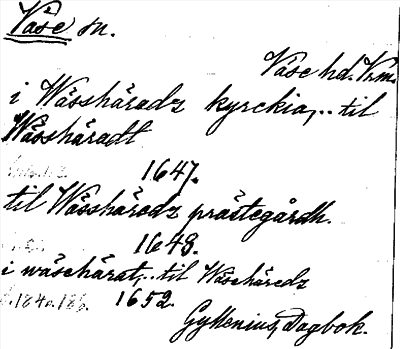 Väse sn.
Väse hd. Vrm.
i Wässhäradz kyrckia,.. til
Wässhäradt
1647.
til Wässhäredz prästegårdh.
1648.
i wäsehärat,.. til Wäsehäredz
s. 184 o. 186. 1652.
Gyllenius, Dagbok.